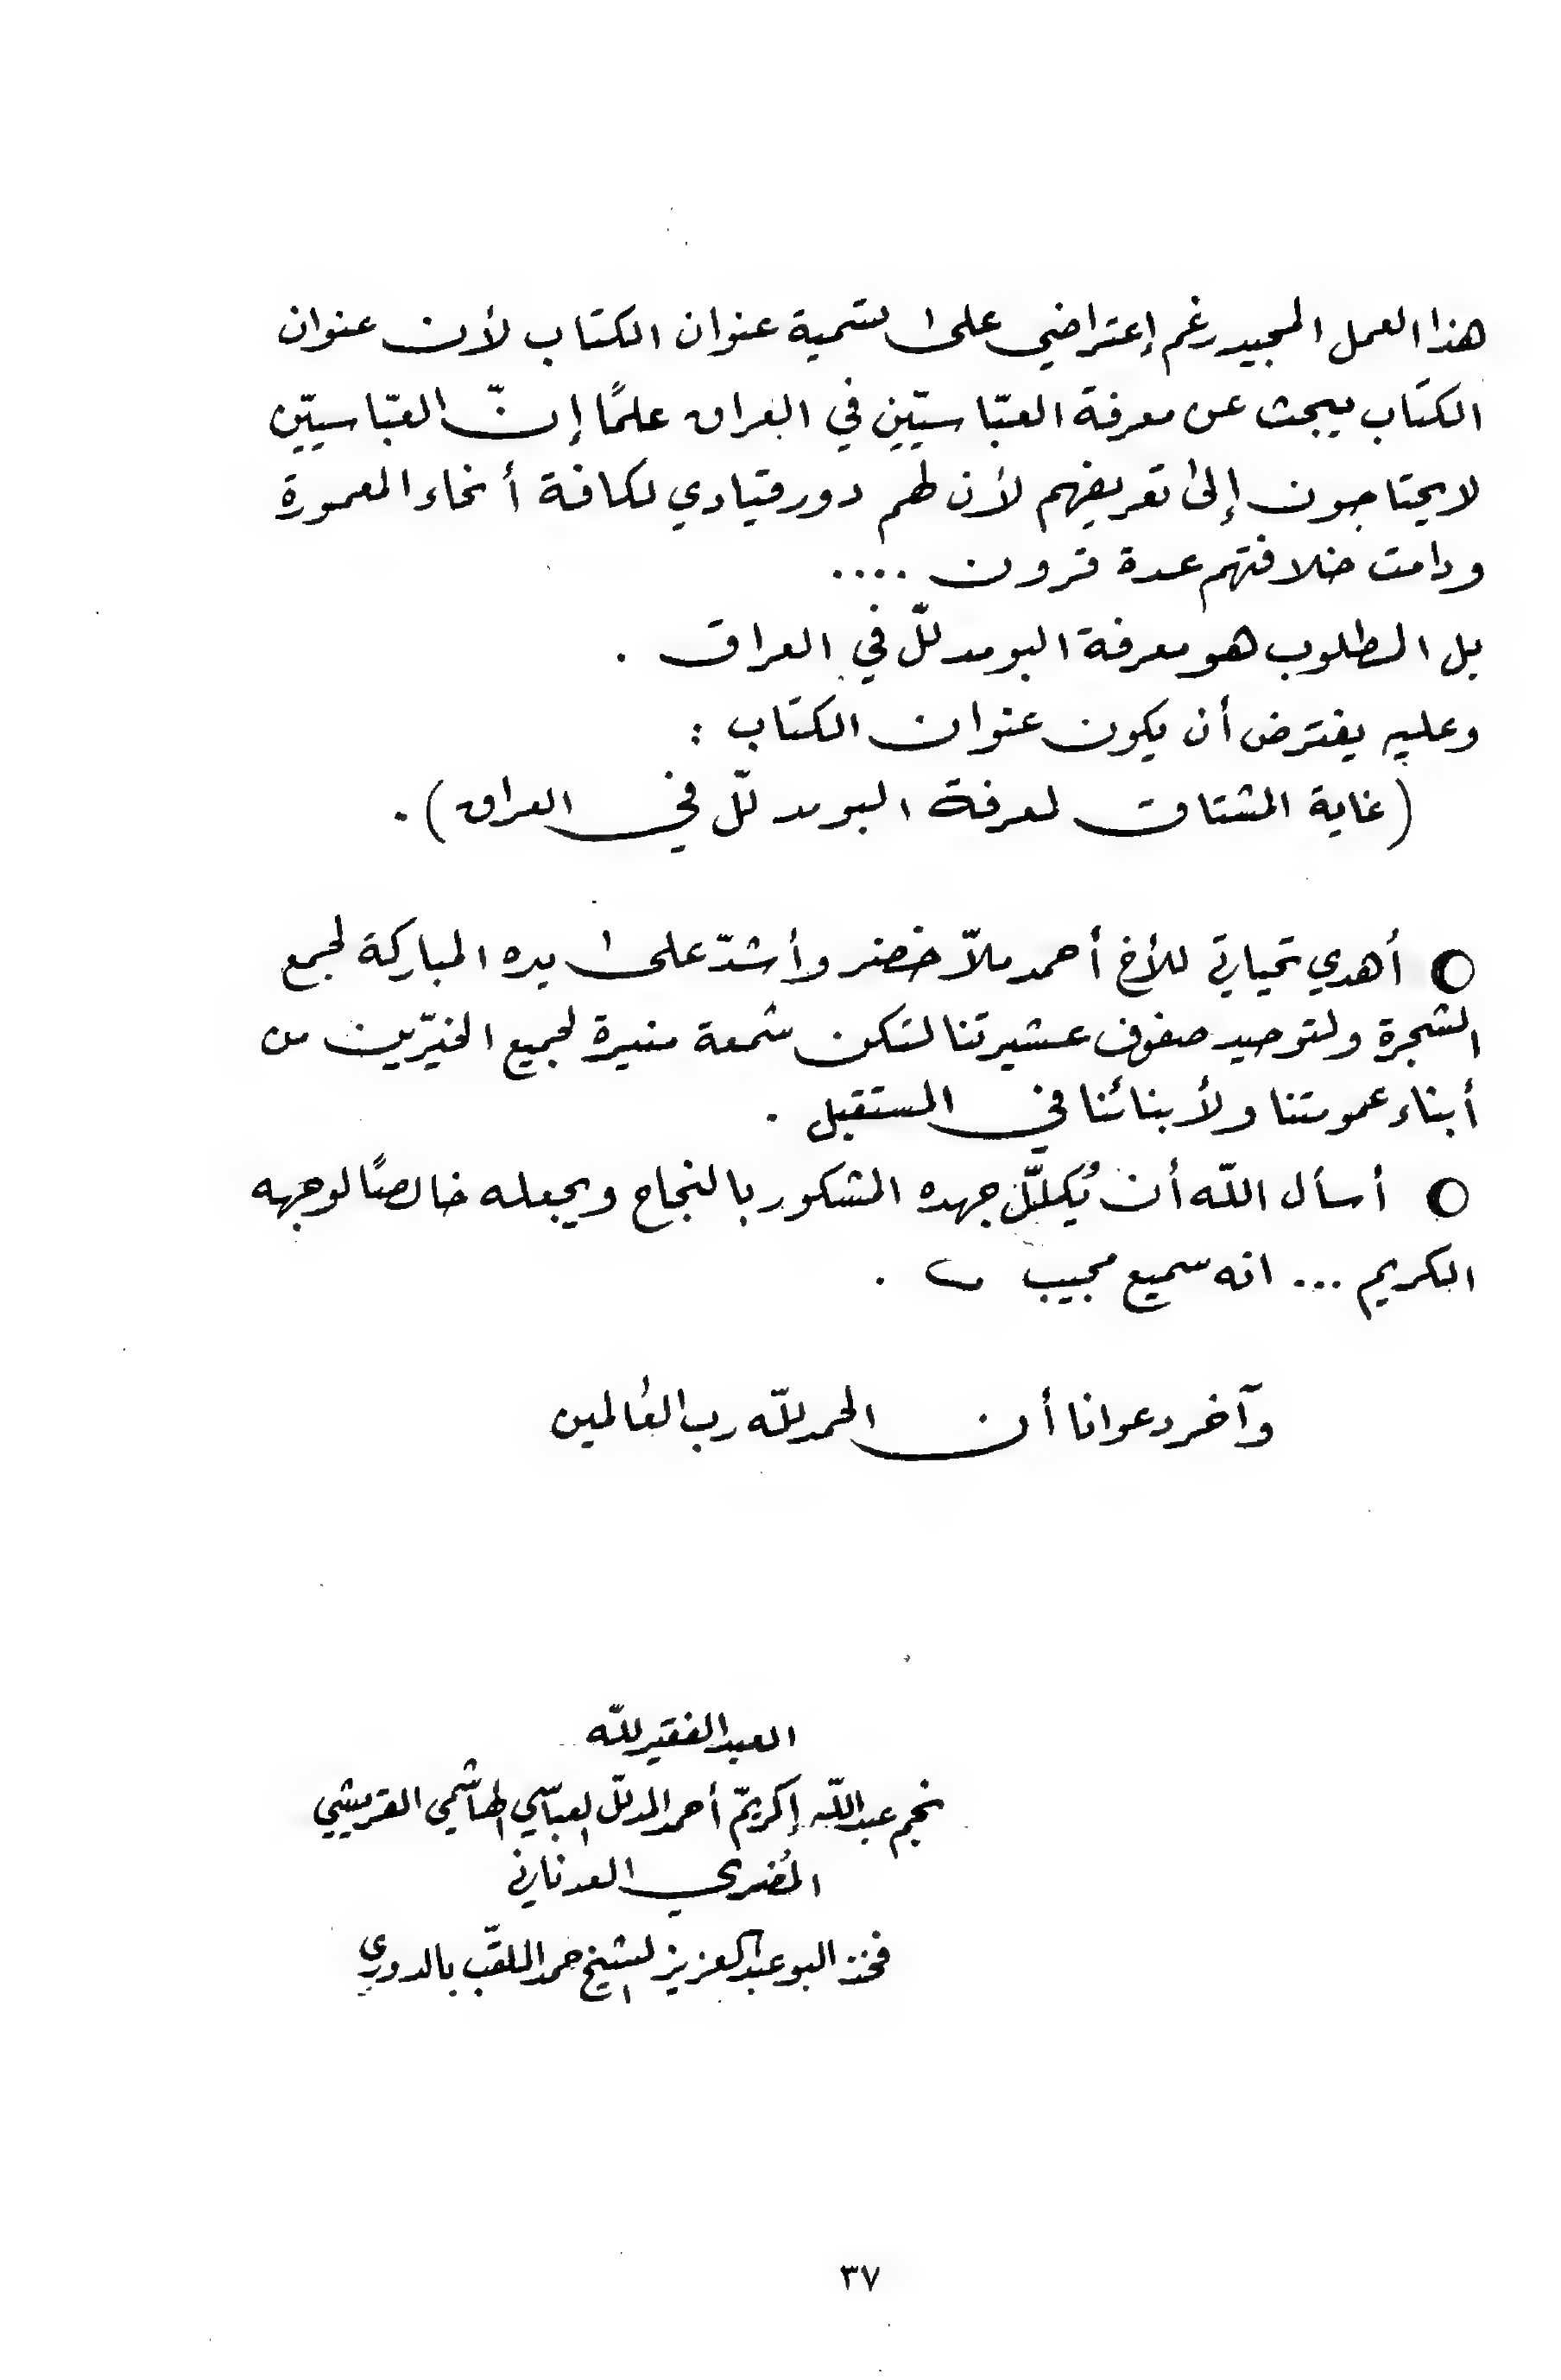 هذا العمل المجيد رغم إعتراضي على تسمية عنوان الكتاب لأن عنوان
الكتاب يبحث عن معرفة العبّاسيّين في العراق علمًا إنّ العبّاسيّين
لا يحتاجون إلى تعريفهم لأن لهم دور قيادي لكافة أنحاء المعمورة
ودامت خلافتهم عدة قرون ....
بل المطلوب هو معرفة البو مدللّ في العراق .
وعليه يفترض أن يكون عنوان الكتاب :
(غاية المشتاق لمعرفة البو مدللّ في العراق) .
○ أهدي تحياتي للأخ أحمد ملاّ خضر وأشدّ على يده المباركة لجمع
الشجرة ولتوحيد صفوف عشيرتنا لتكن شمعة منيرة لجميع الخيّرين من
أبناء عمومتنا ولأبنائنا في المستقبل .
○ أسأل اللّه أن يُكللّ جهده المشكور بالنجاح ويجعله خالصًا لوجهه
الكريم ... انه سميع مجيب .
وآخر دعوانا أن الحمد للّه رب العٰالمين
العبد الفقير للّه
نجم عبداللّه إكريّم أحمد المدللّ العبّاسي الهاشمي القريشي
المُضري العدناني
فخذ البو عبدالعزيز الشيخ حمد الملقّب بالدوري
٣٧